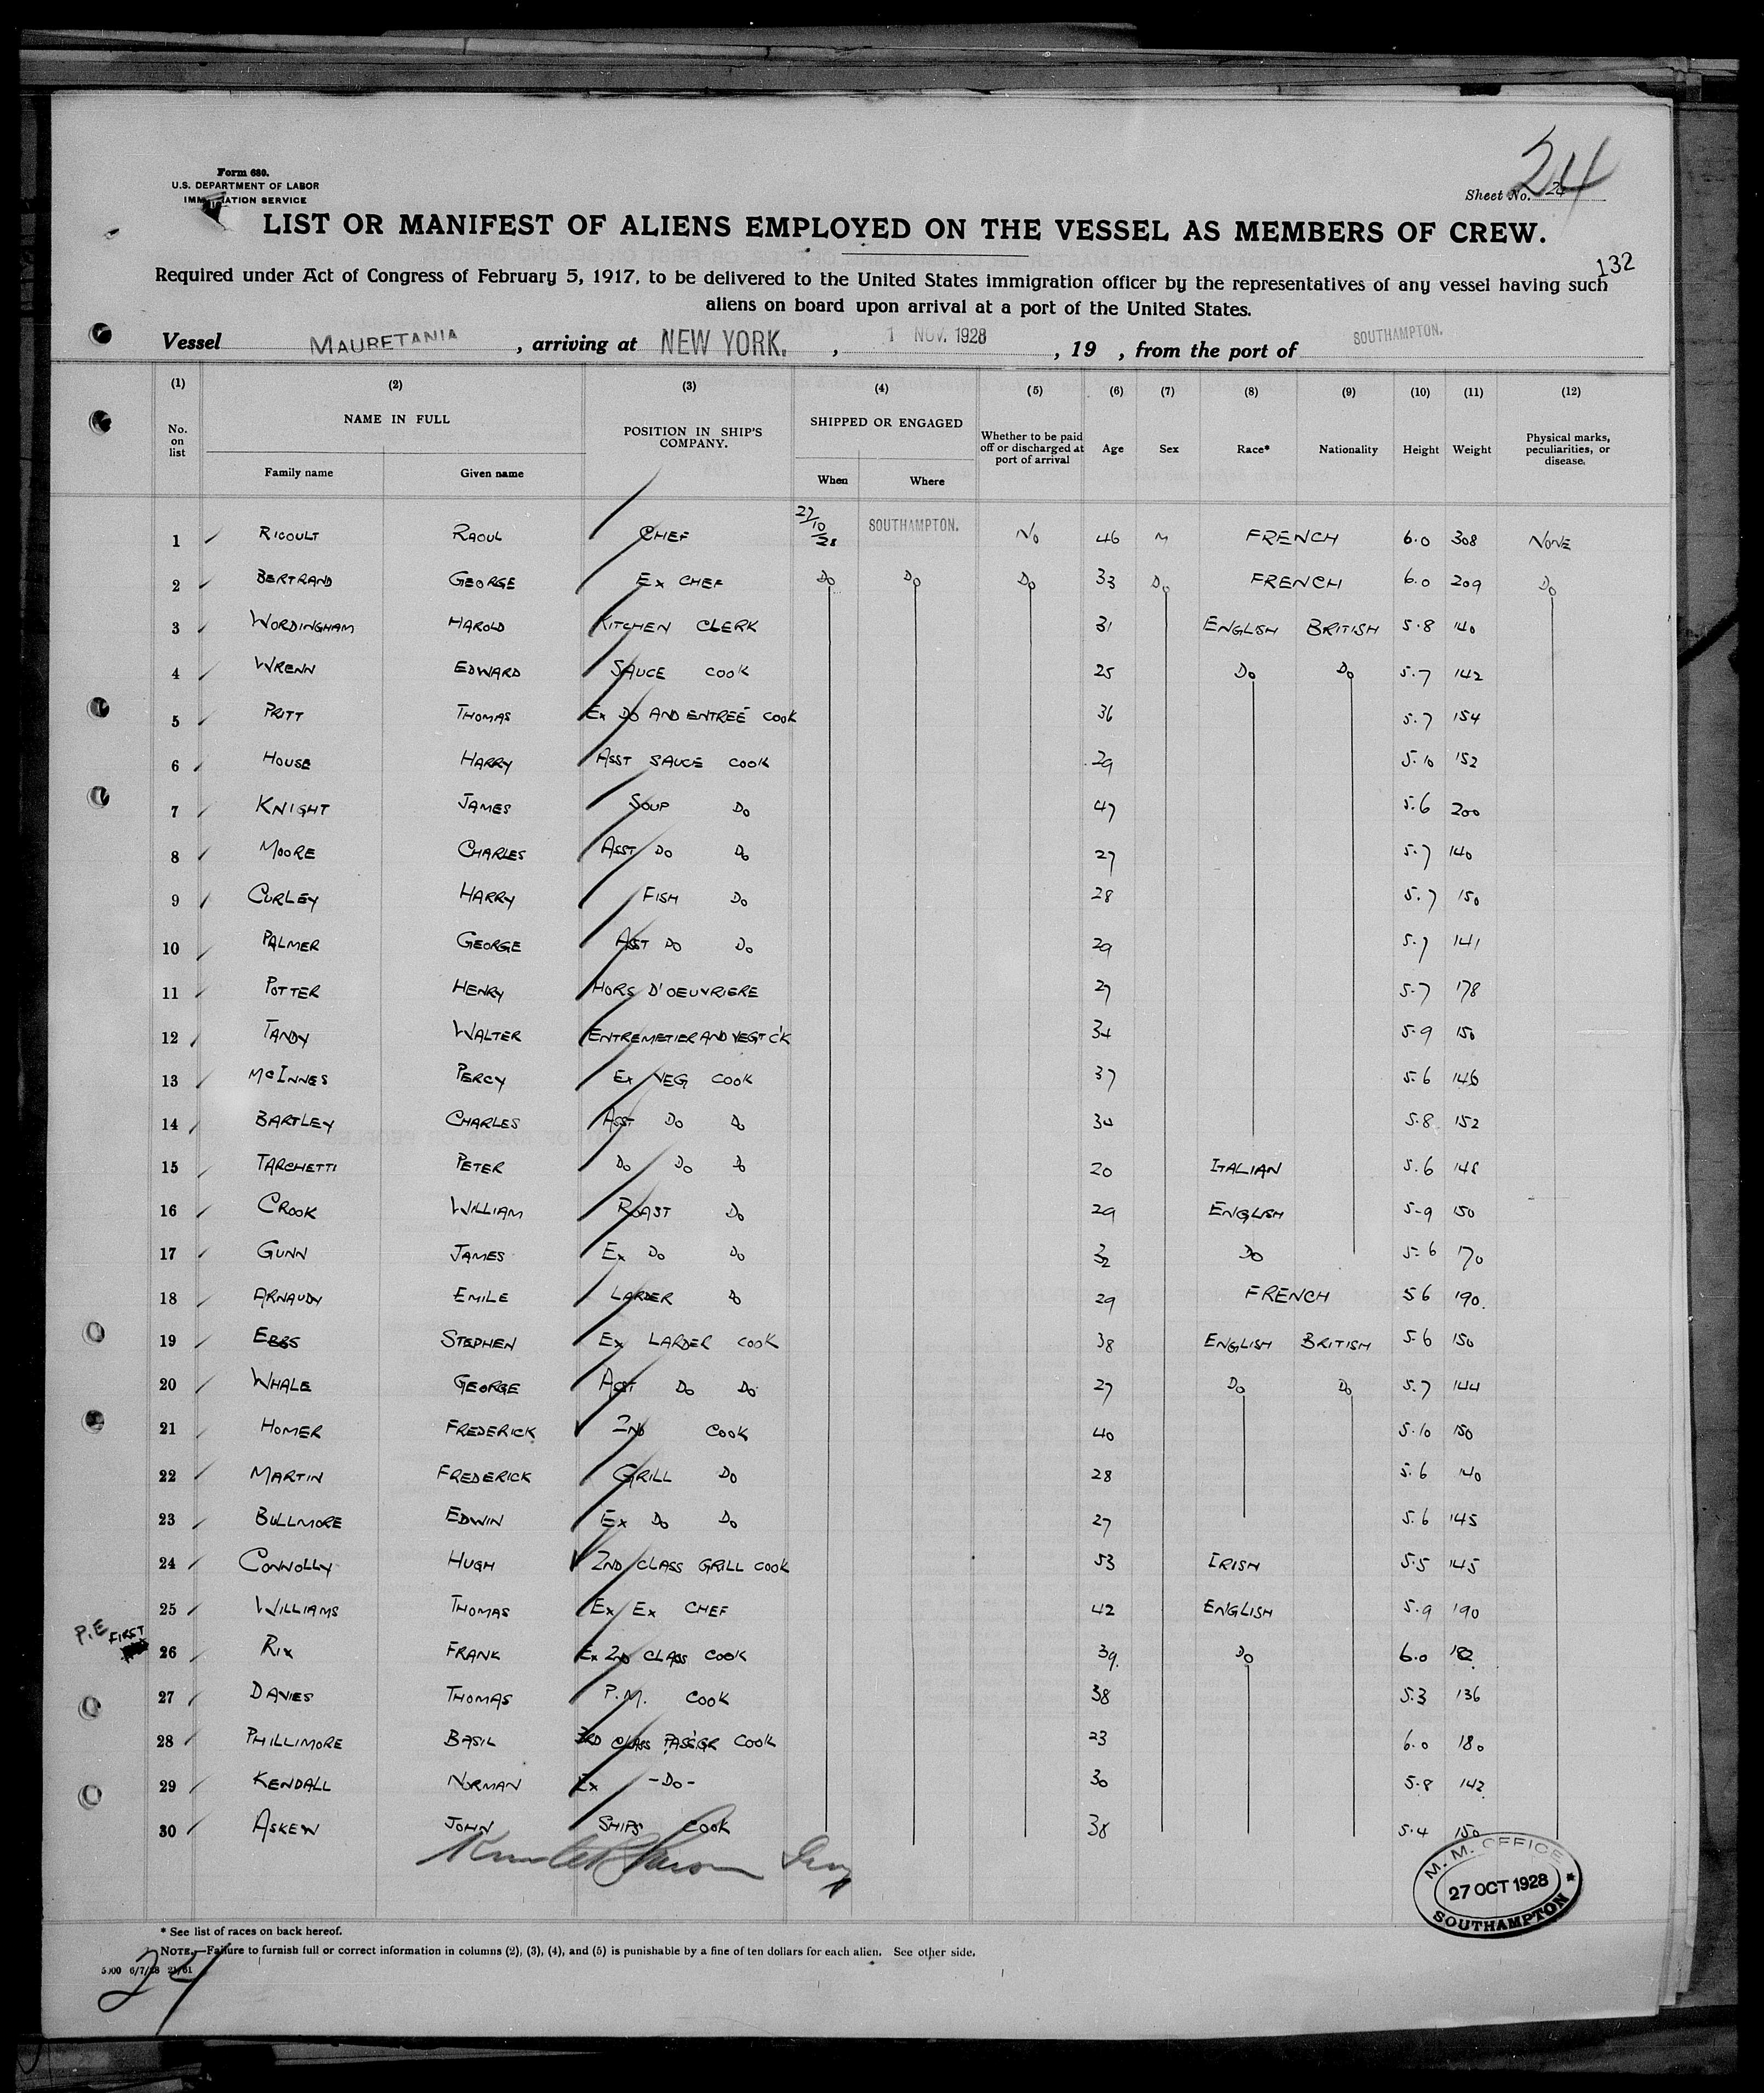 24
Form 680.
U.S. DEPARTMENT OF LABOR
IMMIGRATION SERVICE
Sheet No. 24
LIST OR MANIFEST OF ALIENS EMPLOYED ON THE VESSEL AS MEMBERS OF CREW.
132
Required under Act of Congress of February 5, 1917, to be delivered to the United States immigration officer by the representatives of any vessel having such
aliens on board upon arrival at a port of the United States.
Vessel MAURETANIA , arriving at NEW YORK. , 1 NOV. 1928 , 19 , from the port of SOUTHAMPTON.
(1) (2) (3) (4) (5) (6) (7) (8) (9) (10) (11) (12)
No. on list NAME IN FULL Family name Given name POSITION IN SHIP'S COMPANY. SHIPPED OR ENGAGED When Where Whether to be paid off or discharged at port of arrival Age Sex Race* Nationality Height Weight Physical marks, peculiarities, or disease.
1 RICOULT RAOUL CHEF 27/10/28 SOUTHAMPTON. NO 46 M FRENCH 6.0 308 NONE
2 BERTRAND GEORGE EX CHEF DO DO DO 33 DO FRENCH 6.0 209 DO
3 WORDINGHAM HAROLD KITCHEN CLERK 31 ENGLISH BRITISH 5.8 140
4 WRENN EDWARD SAUCE COOK 25 DO DO 5.7 142
5 PRITT THOMAS EX DO AND ENTREÉ COOK 36 5.7 154
6 HOUSE HARRY ASST SAUCE COOK 29 5.10 152
7 KNIGHT JAMES SOUP DO 47 5.6 200
8 MOORE CHARLES ASST DO DO 27 5.7 140
9 CURLEY HARRY FISH DO 28 5.7 150
10 PALMER GEORGE ASST DO DO 29 5.7 141
11 POTTER HENRY HORS D'OEUVRIERE 27 5.7 178
12 TANDY WALTER ENTREMETIER AND VEGT C'K 34 5.9 150
13 McINNES PERCY EX VEG COOK 37 5.6 146
14 BARTLEY CHARLES ASST DO DO 34 5.8 152
15 TARCHETTI PETER DO DO DO 20 ITALIAN 5.6 148
16 CROOK WILLIAM ROAST DO 29 ENGLISH 5-9 150
17 GUNN JAMES EX DO DO 32 DO 5.6 170
18 ARNAUDY EMILE LARDER DO 29 FRENCH 5 6 190.
19 EBBS STEPHEN EX LARDER COOK 38 ENGLISH BRITISH 5.6 150
20 WHALE GEORGE ASST DO DO 27 DO DO 5.7 144
21 HOMER FREDERICK 2ND COOK 40 5.10 150
22 MARTIN FREDERICK GRILL DO 28 5.6 140
23 BULLMORE EDWIN EX DO DO 27 5.6 145
24 CONNOLLY HUGH 2ND CLASS GRILL COOK 53 IRISH 5.5 145
25 WILLIAMS THOMAS EX EX CHEF 42 ENGLISH 5.9 190
P.E FIRST 26 RIX FRANK EX 2ND CLASS COOK 39. DO 6.0 182
27 DAVIES THOMAS P.M. COOK 38 5.3 136
28 PHILLIMORE BASIL 3RD CLASS PASS'GR COOK 23 6.0 180
29 KENDALL NORMAN EX -DO- 30 5.8 142
30 ASKEW JOHN SHIPS COOK 38 5.4 150
M. M. OFFICE
27 OCT 1928
SOUTHAMPTON
* See list of races on back hereof.
NOTE.—Failure to furnish full or correct information in columns (2), (3), (4), and (5) is punishable by a fine of ten dollars for each alien. See other side.
24